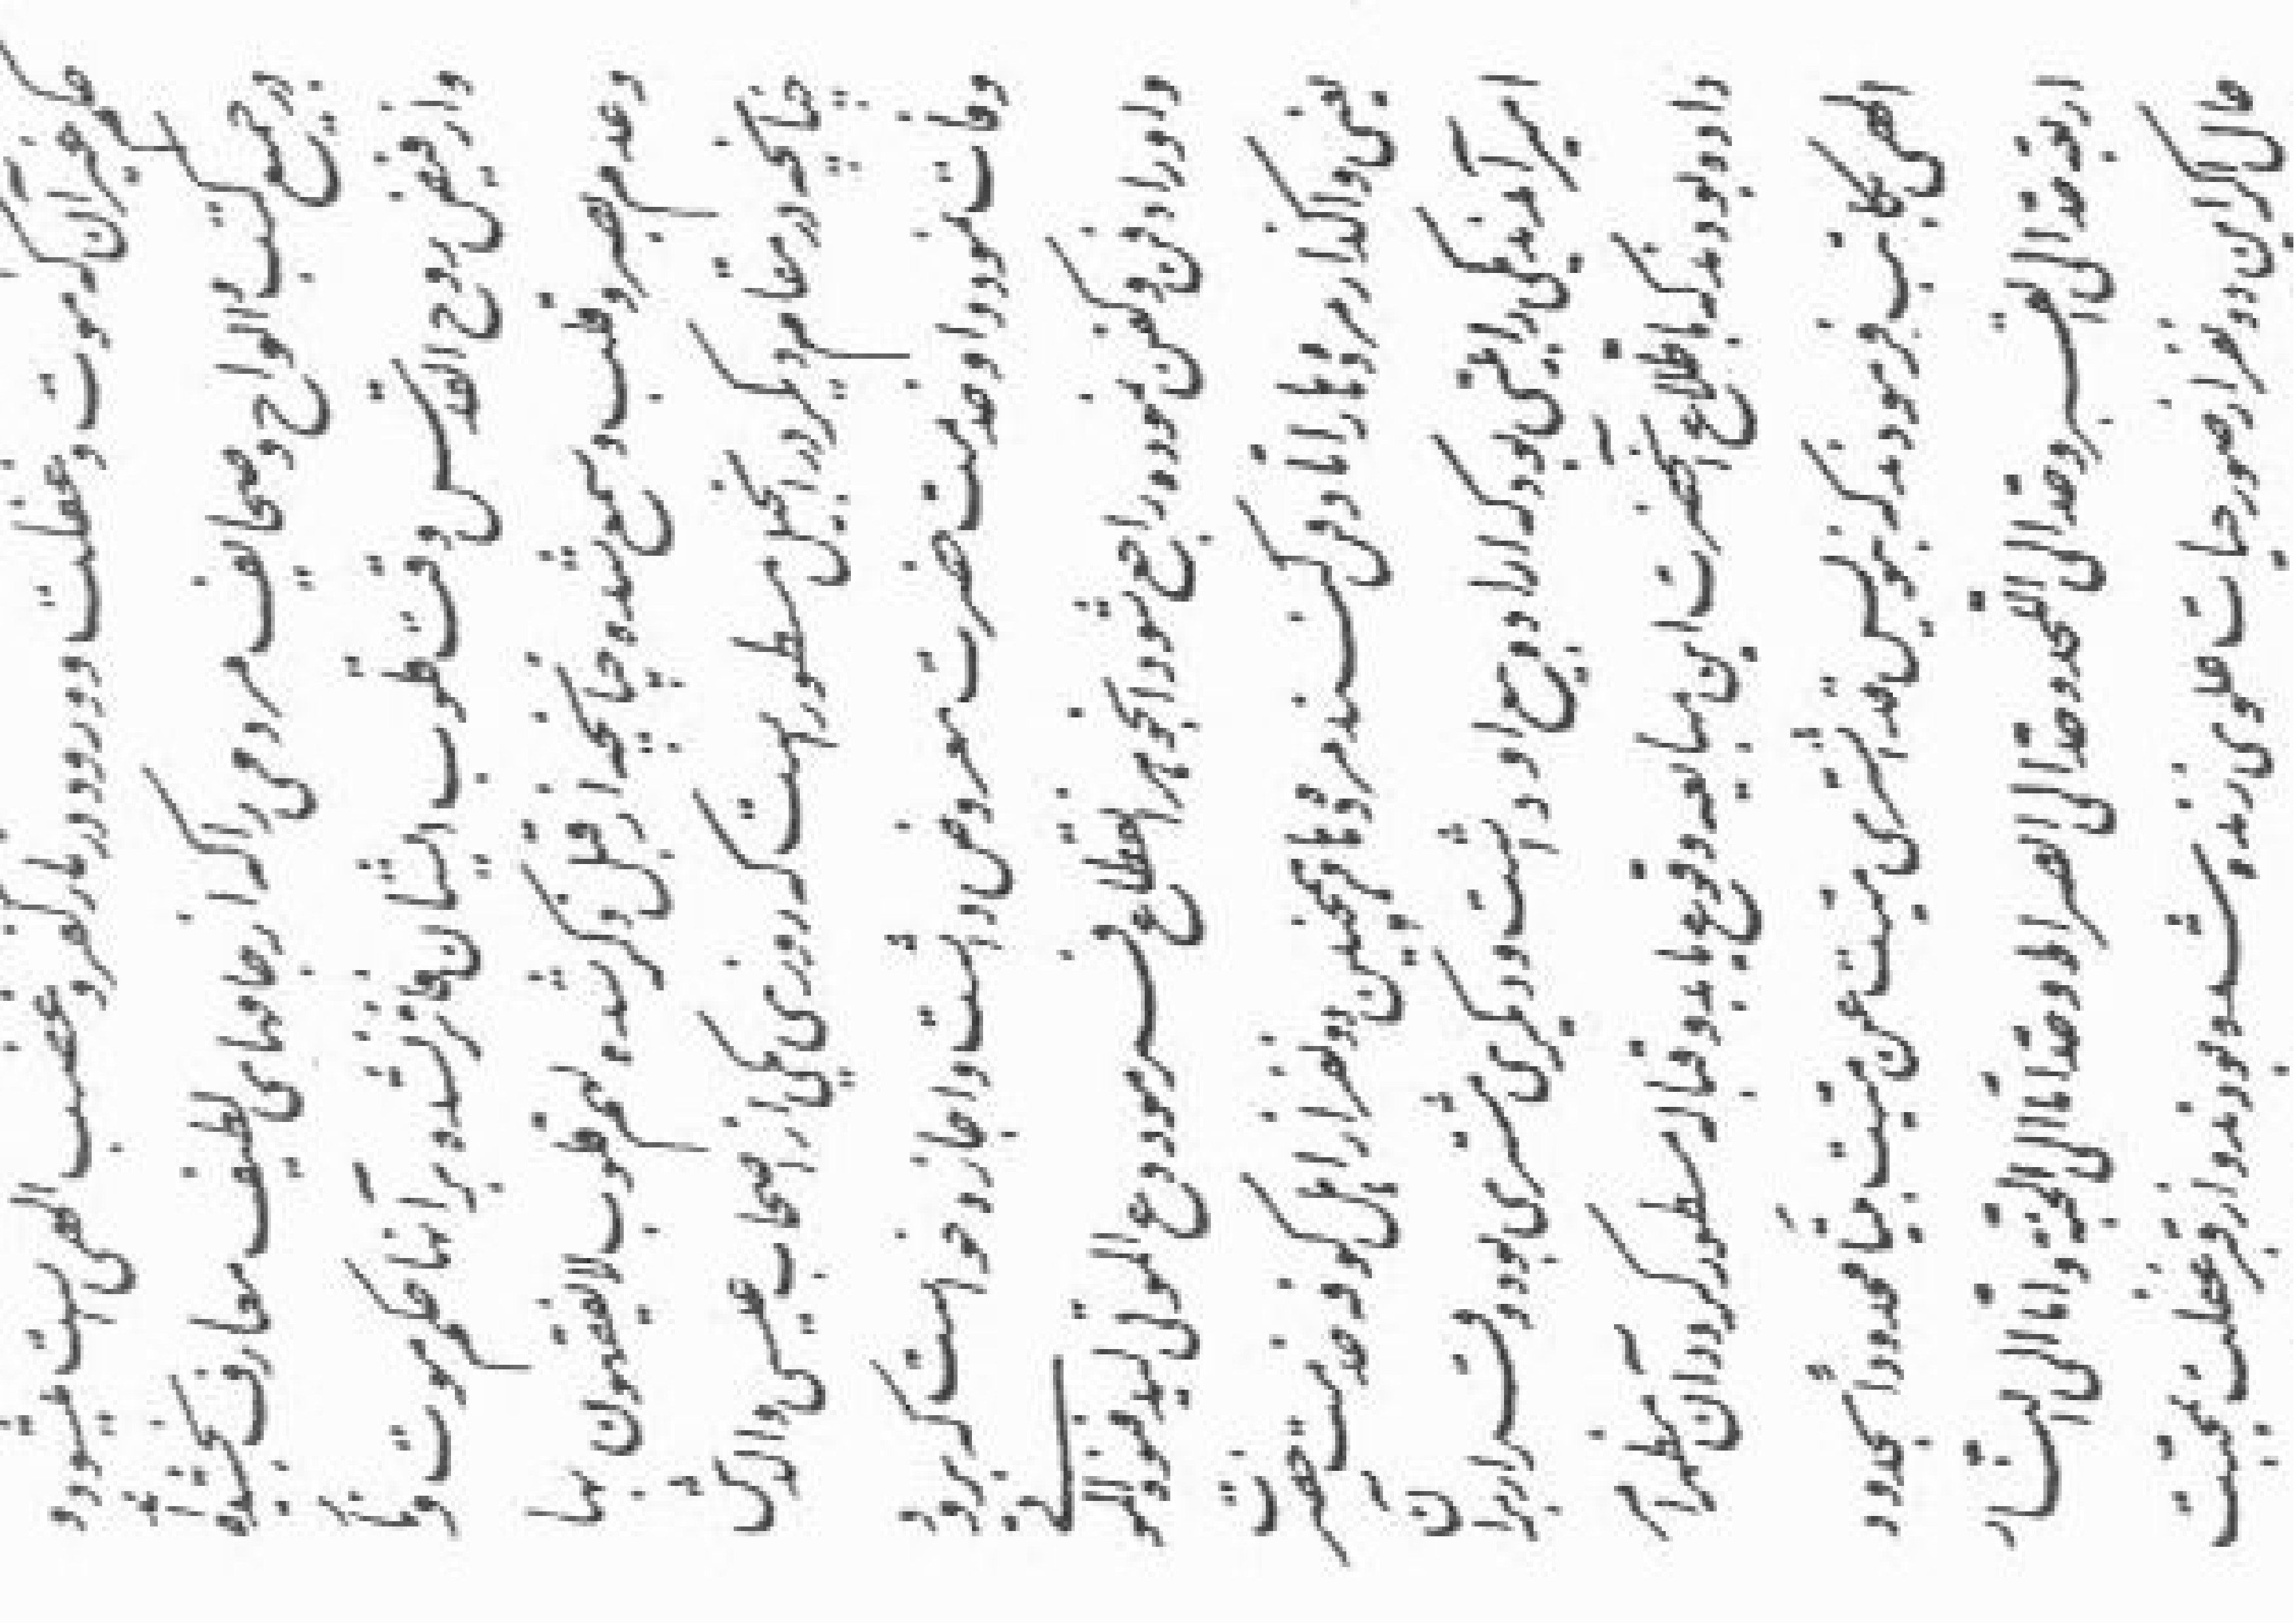 حکم غیر آن که موت و غفلت و ورود در نار کفر و غضب الهی است میشود و
در جمیع کتب و الواح و صحایف مردمی را که از جامهای لطیف معارف نچشیده اند
و از فیض روح القدس وقت قلوب ایشان فائز نشد و بر آنها حکم موت و نار
و عدم بصر و قلب و سمع شده چنانچه از قبل ذکر شده لهم قلوب لا یفقهون بها
چنانچه در مقام دیگر در انجیل مسطور است که روزی یکی از اصحاب عیسی والدش
وفات نمود و او خدمت حضرت معروض داشت و اجازه خواست که برود
و او را دفن و کفن نموده راجع شود آنجوهر انقطاع فرمود دع الموتی لیدفنوه الموتی
یعنی واگذار مرده ها را تا دفن کنند مرده ها و همچنین دو نفر از اهل کوفه خدمت حضرت
امیر آمدند یکی را بیتی بود که اراده بیع او داشت و دیگری مشتری بود و قرار بر آن
داده بودند که باطلاع آنحضرت این مبایعه وقوع یابد و قباله مسطور گردد آن مظهر امر
الهی بکاتب فرمودند که بنویس قد اشتری میت عن میت بیتا محدودا بحدود
اربعة حد الی القبر و حد الی اللحد و حد الی الصراط و حد اما الی الجنة و اما الی النار
حال اگر این دو نفر از صور حیات علوی زنده شده بودند و از قبر غفلت بمحبت